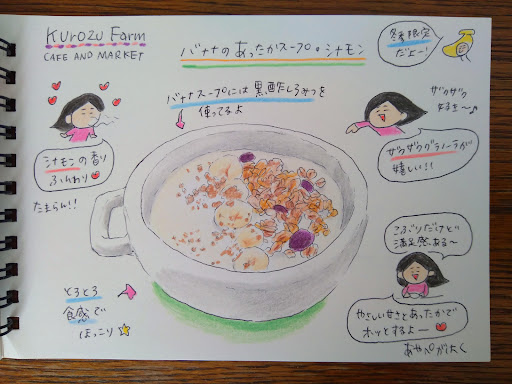 KUROZU Farm
CAFE AND MARKET
バナナのあったかスープ。シナモン
冬季限定
だよー!
バナナスープには黒酢しろみつを
使ってるよ
ザクザク
好き〜♪
シナモンの香り
ふんわり
たまらん!!
ザクザクグラノーラが
嬉しい!!
こぶりだけど
満足感ある〜
とろとろ
食感で
ほっこり
やさしい甘さとあったかで
ホッとするよー